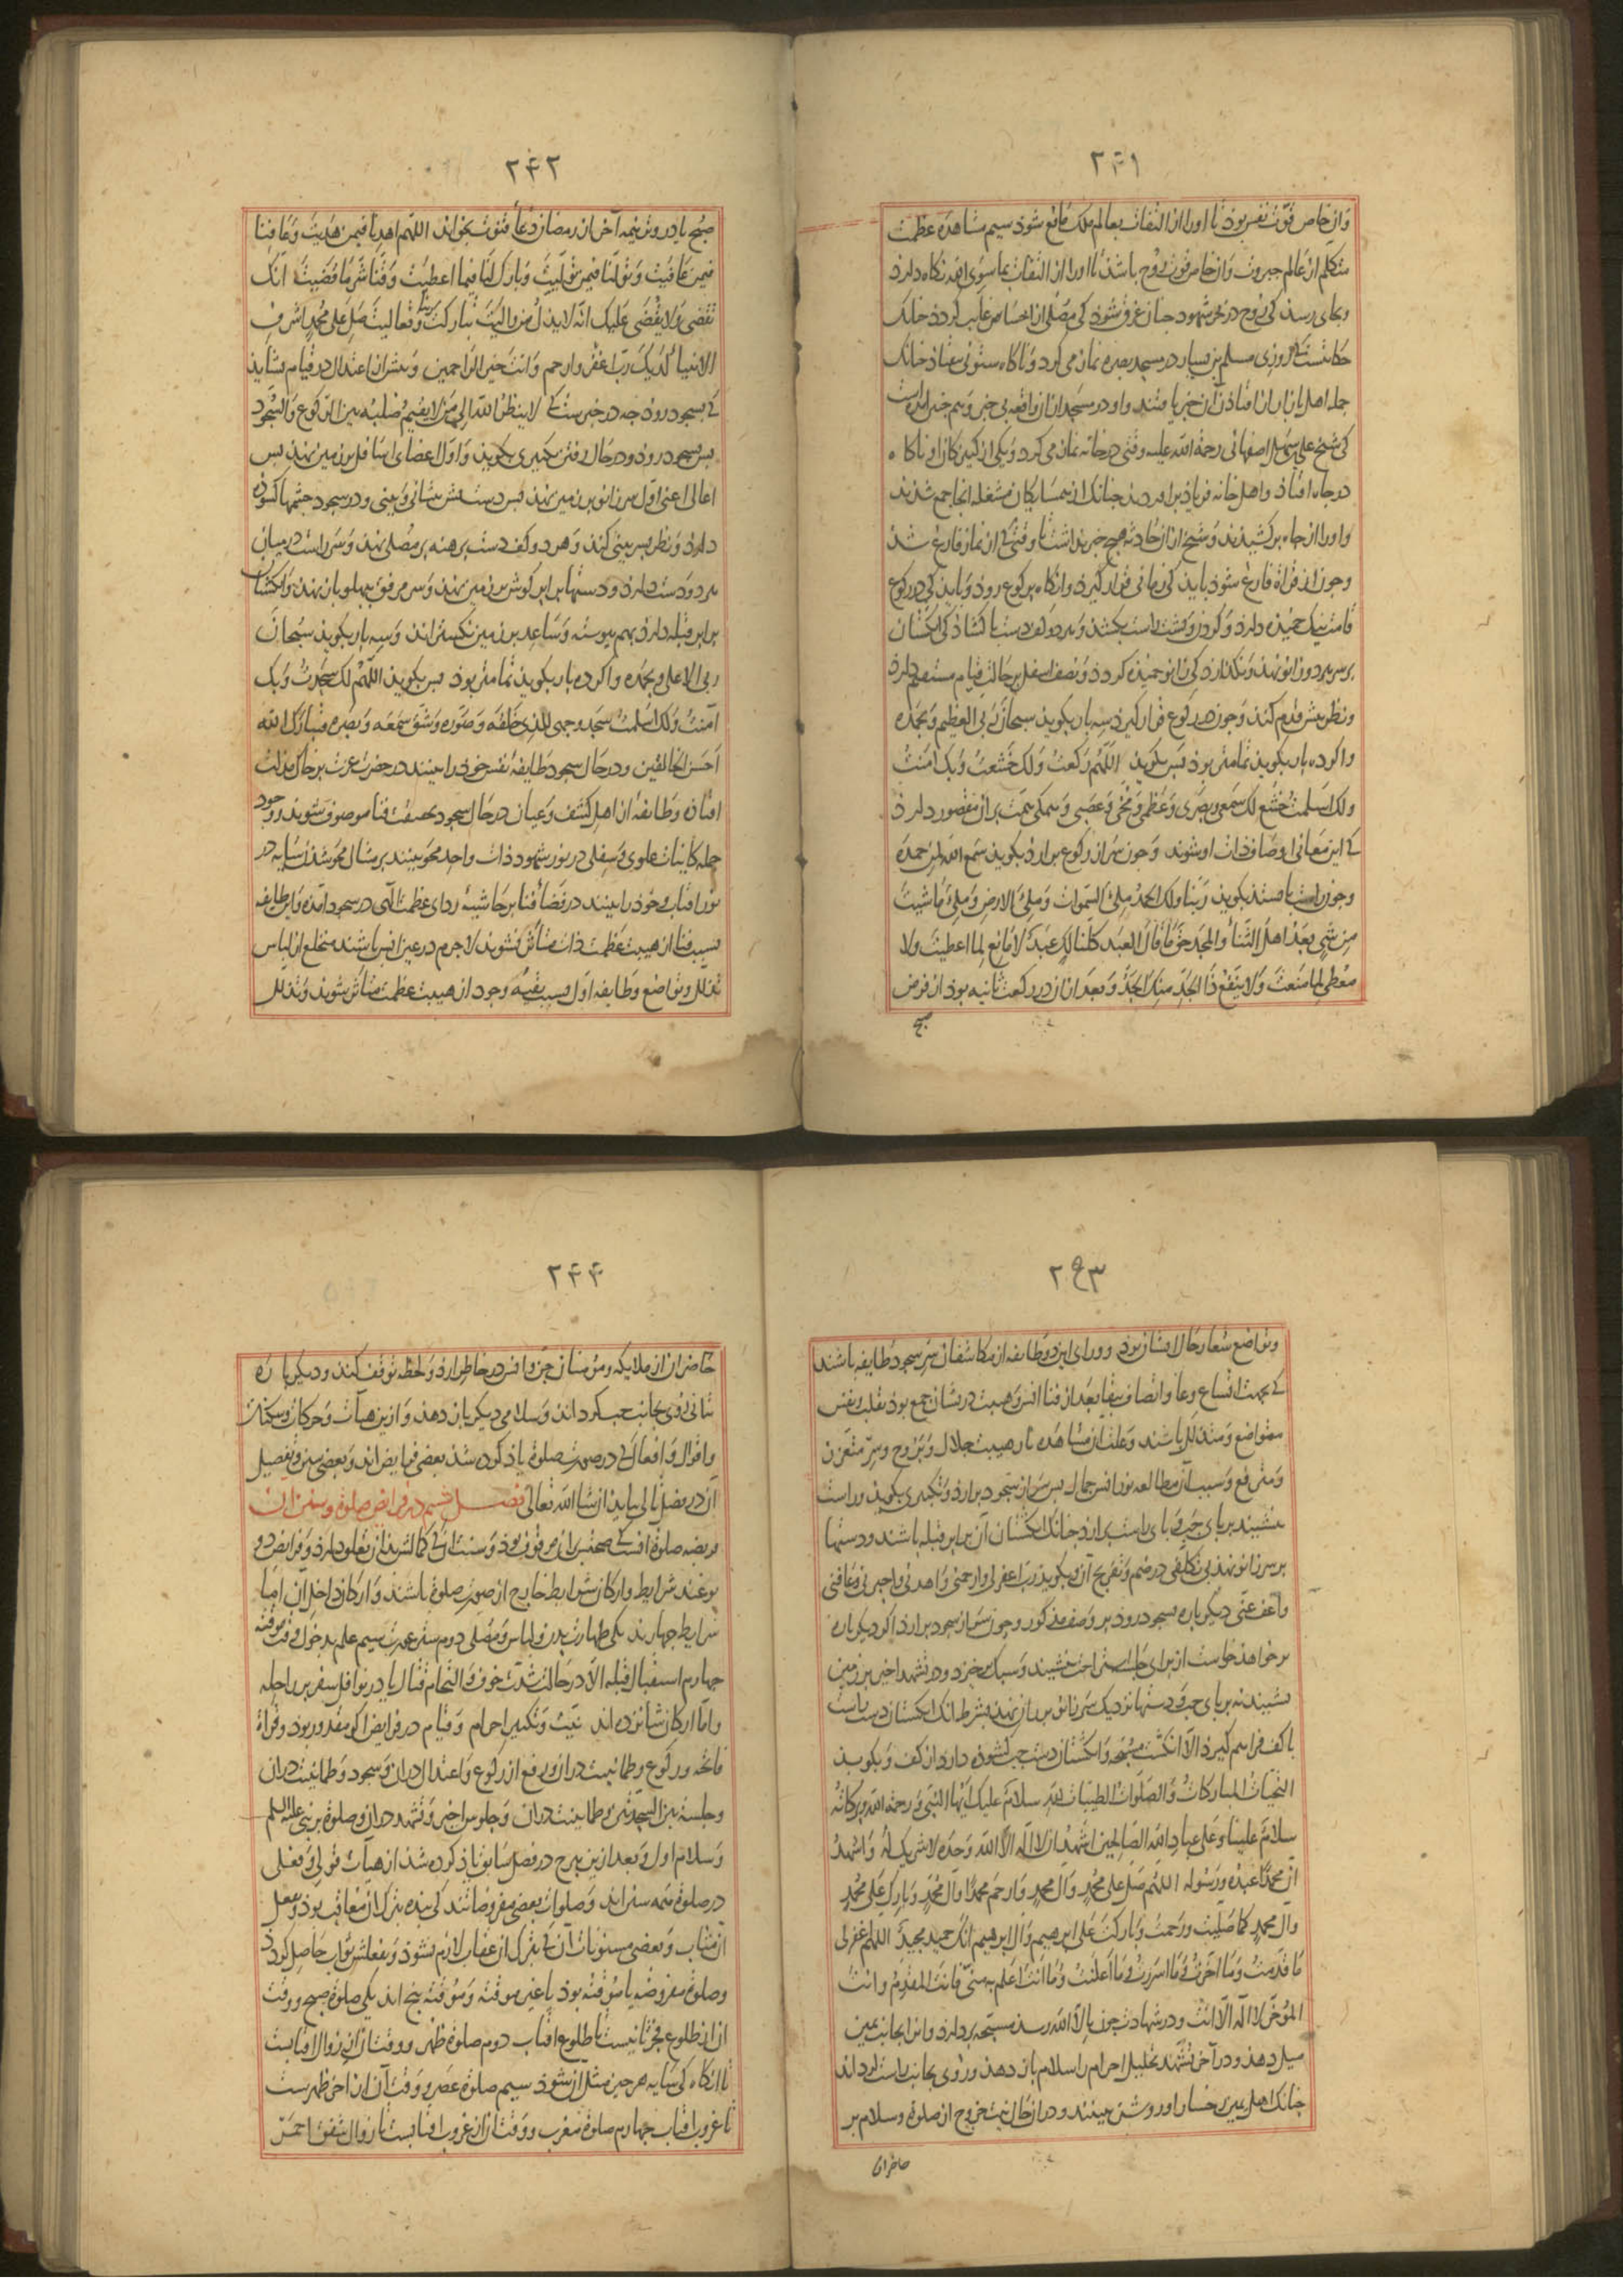 ۲۴۱
وآن خاص قوت نفس بوذ تا اورا از التفات بعالم ملک مانع شوذ سیم مشاهده عظمت
متکلم از عالم جبروت وآن خاص قوت روح باشذ تا اورا از التفات بما سوی الله نکاه دارذ
وبجای رسذ کی روح در بحر شهود جنان غرق شوذ کی مصلی از احساس غایب کردذ جنانک
حکایتست کی روزی مسلم بن یسار در مسجد بصره نماز می کرد وناکاه ستونی بیفتاذ جنانک
جمله اهل بازار از افتاذن آن خبر یافتند واو در مسجد ازان واقعه بی خبر وهم خبر آمده است
کی شیخ علی سهل اصفهانی رحمة الله علیه وقتی در خانه نماز می کرد ویکی از کنیزکان او ناکاه
در جاه افتاذ واهل خانه فریاذ براوردند جنانک از همسایکان مشغله انجا جمع شذند
واورا از جاه برکشیذند وشیخ ازان حادثه هیج خبر نداشت تا وقتی کی از نماز فارغ شذ
وجون از قراة فارغ شوذ بایذ کی زمانی قرار کیرذ وانکاه برکوع روذ وبایذ کی در رکوع
قامت نیک خمیذه دارذ وکردن وپشت راست بکشذ وهر دو کف دست با کشاذکی انکشتان
بر سر هر دو زانو نهذ ونکذارد کی زانو خمیذه کردذ ونصف اسفل بر حالت قیام مستقیم دارذ
ونظر بپش قدم کنذ وجون در رکوع قرار کیرذ سه بار بکویذ سبحان ربی العظیم وبحمده
واکر ده بار بکویذ تمامتر بوذ پس بکویذ اللهم لک رکعت ولک خشعت وبک آمنت
ولک اسلمت خشع لک سمعی وبصری وعظمی ومخی وعصبی وهمکی همت بران مقصور دارذ
کی این معانی اوصاف ذات او شوند وجون سر از رکوع برارذ بکویذ سمع الله لمن حمده
وجون راست بایستذ بکویذ ربنا ولک الحمد ملئ السموات وملئ الارض وملئ ما شئت
من شئ بعد اهل الثناء والمجد حق ما قال العبد کلنا لک عبد لا مانع لما اعطیت ولا
معطی لما منعت ولا ینفع ذا الجد منک الجد وبعد ازان در رکعت ثانیه بوذ از فرض
صبح
۲۴۲
صبح یا در وتر نیمه آخر از رمضان دعاء قنوت بخواند اللهم اهدنا فیمن هدیت وعافنا
فیمن عافیت وتولنا فیمن تولیت وبارک لنا فیما اعطیت وقنا شر ما قضیت انک
تقضی ولا یقضی علیک انه لا یذل من والیت تبارکت ربنا وتعالیت صل علی محمد اشرف
الانبیاء لدیک رب اغفر وارحم وانت خیر الراحمین وپیش از اعتدال در قیام نشاید
کی بسجود روذ جه در خبرست کی لا ینظر الله الی من لا یقیم صلبه بین الرکوع والسجود
پس بسجود روذ ودر حال رفتن تکبیری بکویذ واول اعضای اسافل بر زمین نهذ پس
اعالی اعنی اول سر زانو بر زمین نهذ پس دست پس پیشانی وبینی ودر سجود جشمها کشوده
دارد ونظر بسر بینی کند وهر دو کف دست برهنه بر مصلی نهذ وسر راست در میان
هر دو دست دارذ ودستها برابر کوش بر زمین نهذ وسر مرفق بپهلو باز نهذ وانکشتان
برابر قبله دارذ بهم پیوسته وساعد بر زمین نکستراند وسه بار بکویذ سبحان
ربی الاعلی وبحمده واکر ده بار بکویذ تمامتر بوذ پس بکویذ اللهم لک سجدت وبک
آمنت ولک اسلمت سجد وجهی للذی خلقه وصوره وشق سمعه وبصره فتبارک الله
احسن الخالقین ودر حال سجود طایفه نفس خوذ را بینند در حضرت عزت بر خاک مذلت
افتاذه وطایفه از اهل کشف وعیان در حال سجود بصفت فنا موصوف شوند ووجود
جمله کاینات علوی وسفلی در نور شهود ذات واحد محو بینند بر مثال محو شذن سایه در
نور افتاب وخوذ را بینند در فضاء فنا بر حاشیه ردای عظمت الهی در سجود آمذه واین طایفه
بسبب فنا از هیبت عظمت ذات متأثر نشوند لاجرم در عین انس باشند منخلع از لباس
تذلل وتواضع وطایفه اول بسبب بقیه وجود از هیبت عظمت متأثر شوند وتذلل
۲۴۳
وتواضع شعار حال ایشان بوذ وورای این دو طایفه از مکاشفان سر سجود طایفه باشند
کی بجهت اتساع وعا واتصاف ببقا بعد از فنا انس وهیبت دریشان جمع بوذ بقلب ونفس
متواضع ومتذلل باشند وعلت آن مشاهده نار هیبت جلال وبروح وسر متعزز
ومترفع وسبب آن مطالعه نور انس جمال پس سر از سجود برارد وتکبیری بکوید وراست
بنشیند بر پای جپ وپای راست برارذ جنانک انکشتان آن برابر قبله باشند ودستها
بر سر زانو نهذ بی تکلفی در ضم وتفریج آن وبکوید رب اغفر لی وارحمنی واهدنی واجبرنی وعافنی
واعف عنی دیکر باره بسجود روذ بر وصف مذکور وجون سر از سجود برارد اکر دیکر باره
بر خواهذ خواست از برای جلسه استراحت بنشیند وسبک برخیزد ودر تشهد اخیر بر زمین
نشیند نه بر پای جپ ودستها نزدیک سر زانو بر ران نهذ بشرط آنک انکشتان دست راست
با کف فراهم کیرذ الا انکشت مسبحه وانکشتان دست جپ کشوده دارد از کف وبکویذ
التحیات المبارکات والصلوات الطیبات لله سلام علیک ایها النبی ورحمة الله وبرکاته
سلام علینا وعلی عباد الله الصالحین اشهد ان لا اله الا الله وحده لا شریک له واشهد
ان محمدا عبده ورسوله اللهم صل علی محمد وآل محمد وارحم محمدا وآل محمد وبارک علی محمد
وآل محمد کما صلیت ورحمت وبارکت علی ابرهیم وآل ابرهیم انک حمید مجید اللهم اغفر لی
ما قدمت وما اخرت وما اسررت وما اعلنت وما انت اعلم به منی فانت المقدم وانت
المؤخر لا اله الا انت ودر شهادت جون بالا الله رسذ مسبحه بردارد وانرا بجانب یمین
میل دهذ ودر آخر تشهد تحلیل احرام را سلام باز دهذ وروی بجانب راست کرداند
جنانک اهل یمین رخسار او روشن ببینند ودران حال نیت خروج از صلوة وسلام بر
حاضران
۲۴۴
حاضران از ملایکه ومؤمنان جن وانس در خاطر ارد ولحظه توقف کند ودیکر باره
ثانی روی بجانب جپ کرداند وسلامی دیکر باز دهذ وازین هیآت وحرکات وسکنات
واقوال وافعال کی در صورت صلوة یاذ کرده شذ بعضی فرایض اند وبعضی سنن وتفصیل
آن در فصل تالی بیاید ان شا الله تعالی فصل قسم در فرایض صلوة وسنن آن
فریضه صلوة انست کی صحتش بران موقوف بوذ وسنت آنکی کمالش بذان تعلق دارذ وفرایض دو
نوعند شرایط وارکان شرایط خارج از صورت صلوة باشند وارکان داخل آن اما
شرایط جهارند یکی طهارت بدن ولباس ومصلی دوم ستر عورت سیم علم بدخول وقت موقته
جهارم استقبال قبله الا در حالت شدت خوف والتحام قتال یا در نوافل سفر بر راحله
واما ارکان شانزده اند نیت وتکبیر احرام وقیام در فرایض اکر مقدور بوذ وقراة
فاتحه ورکوع وطمانینت دران ورفع از رکوع واعتدال دران وسجود وطمانینت دران
وجلسه بین السجدتین وطمانینت دران وجلوس اخیر وتشهد دران وصلوة بر نبی علیه السلم
وسلام اول وبعد ازین هرج در فصل سابق یاذ کرده شذ از هیآت قولی وفعلی
در صلوة همه سنن اند وصلوات بعضی مفروضاتند کی بنده بترک آن معاقب بوذ وبفعل
ان مثاب وبعضی مسنونات آن کی بترک آن عقاب لازم نشوذ وبفعلش ثواب حاصل کردذ
وصلوة مفروضه یا موقته بوذ یا غیر موقته وموقته پنج اند یکی صلوة صبح ووقت
ان از طلوع فجر ثانیست تا طلوع افتاب دوم صلوة ظهر ووقت آن از زوال افتابست
تا انکاه کی سایه هر جیز مثل آن شوذ سیم صلوة عصر ووقت آن از اخر ظهرست
تا غروب افتاب جهارم صلوة مغرب ووقت آن از غروب افتابست تا زوال شفق احمر